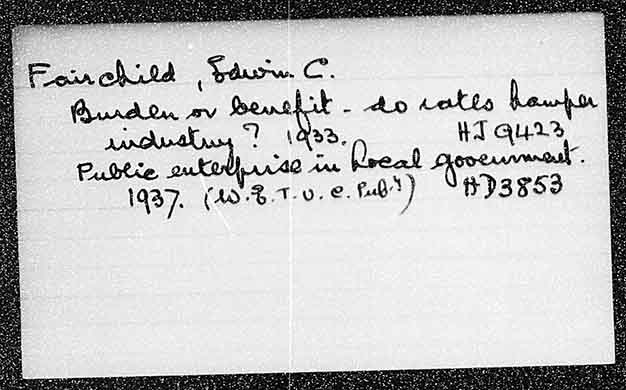 Fairchild, Edwin C.
Burden or benefit - do rates hamper
industry? 1933. HJ 9423
Public enterprise in local government.
1937. (W.E.T.U.C. Pub.n) HD3853